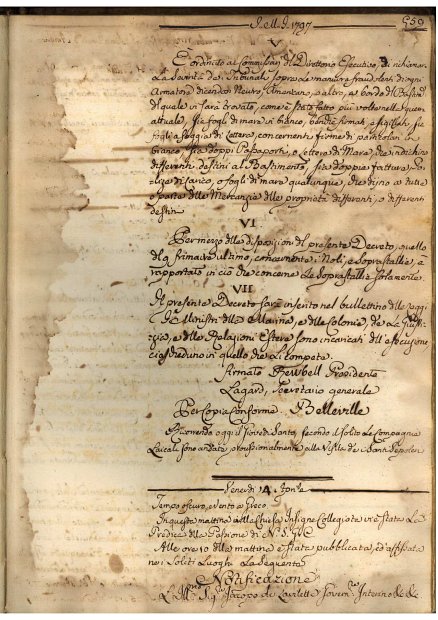 J. M. J. 1797
V
È ordinato ai Commissarj del Direttorio Esecutivo, di richiamare
La Severità de' Tribunali sopra Le manovre fraudolenti di ogni
Armatore dicendosi Neutro, Americano, o altro, a bordo del Bastim.
Di quale vi sarà trovato, come è stato fatto più volte nella guerra
attuale, sie fogli di mare in bianco, benchè firmati e sigillati, sie
fogli a foggia di Lettera, concernenti firme di particolari in
bianco, sia doppi Passaporti, o Lettere di Mare, che indichino
differenti destini al Bastimento, sia doppie fatture, Po-
lize di carico, o fogli di mare qualunque, che dieno a tutte
o parte delle Mercanzie delle proprietà differenti, o differenti
destini
VI
Per mezzo delle disposizioni del presente Decreto, quello
del 9 frimaire ultimo, concernente i Noli, e Soprastallie, è
rapportato in ciò che concerne Le Soprastallie solamente
VII
Il presente Decreto sarà inserito nel bullettino delle Leggi
I Ministri della Marina, e delle Colonie, de La Giusti-
zia, e delle Relazioni Estere sono incaricati dell' esecuzione
ciascheduno in quello che Li compete
Firmato Rewbell Presidente
Lagard, Secretario generale
Per Copia Conforme Belleville
Ricorrendo oggi il Giovedì Santo, secondo il solito Le Compagnie
Laicali sono andate provisionalmente alla Visita de' Santi Sepolcri
Venerdì 14 Aprile
Tempo oscuro, e vento a Greco
In questa mattina nella Chiesa Insigne Collegiata vi è stata La
Predica della Passione di N. S. G. C.
Alle ore 10 della mattina è stata pubblicata, ed affissata
nei Soliti Luoghi La Seguente
Notificazione
L' Ill.mo Sig.re Jacopo de Lavilette Govern.re Interino &c &c